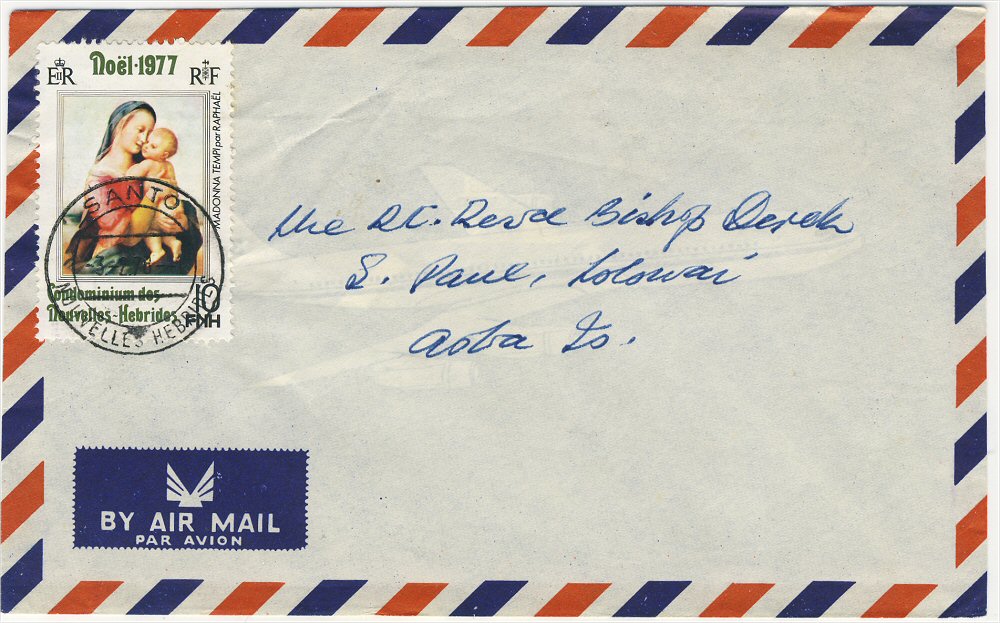 Noël·1977
EIIR RF
MADONNA TEMPI par RAPHAËL
Condominium des
Nouvelles-Hebrides
10
FNH
SANTO
NOUVELLES HEBRIDES
The Rt. Revd Bishop Derek
S. Paul, Lolowai
Aoba Is.
BY AIR MAIL
PAR AVION